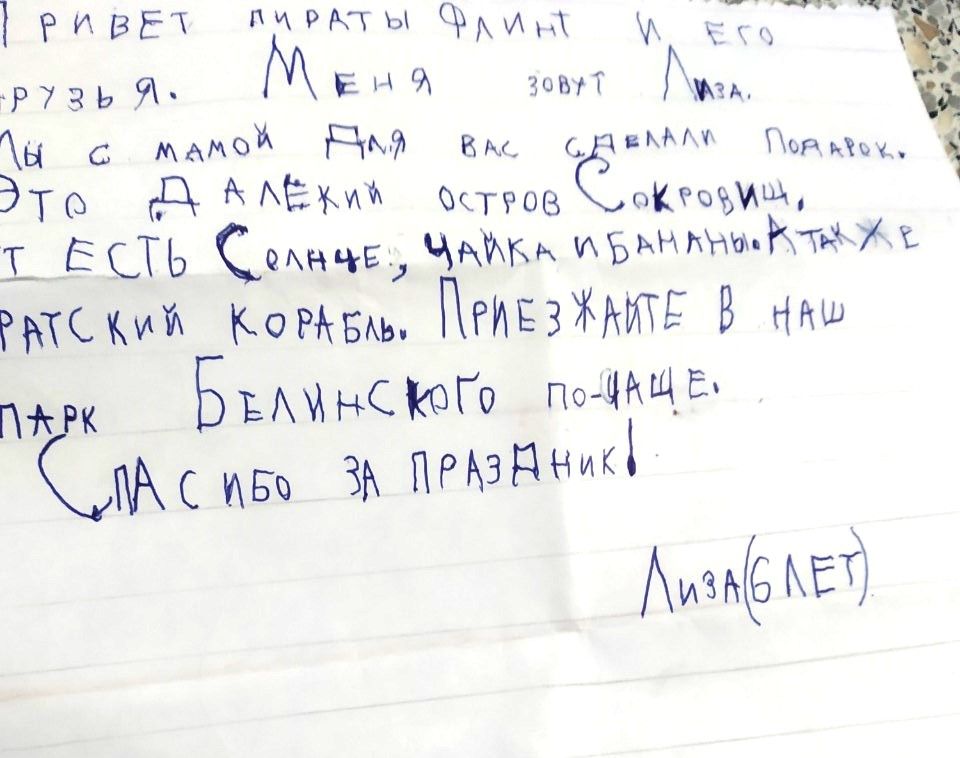 Привет пираты Флинт и его
друзья. Меня зовут Лиза.
Мы с мамой для вас сделали подарок.
Это Далёкий остров Сокровищ.
т есть Солнце, чайка и бананы. А также
ратский корабль. Приезжайте в наш
парк Белинского по-чаще.
Спасибо за праздник!
Лиза (6 лет)